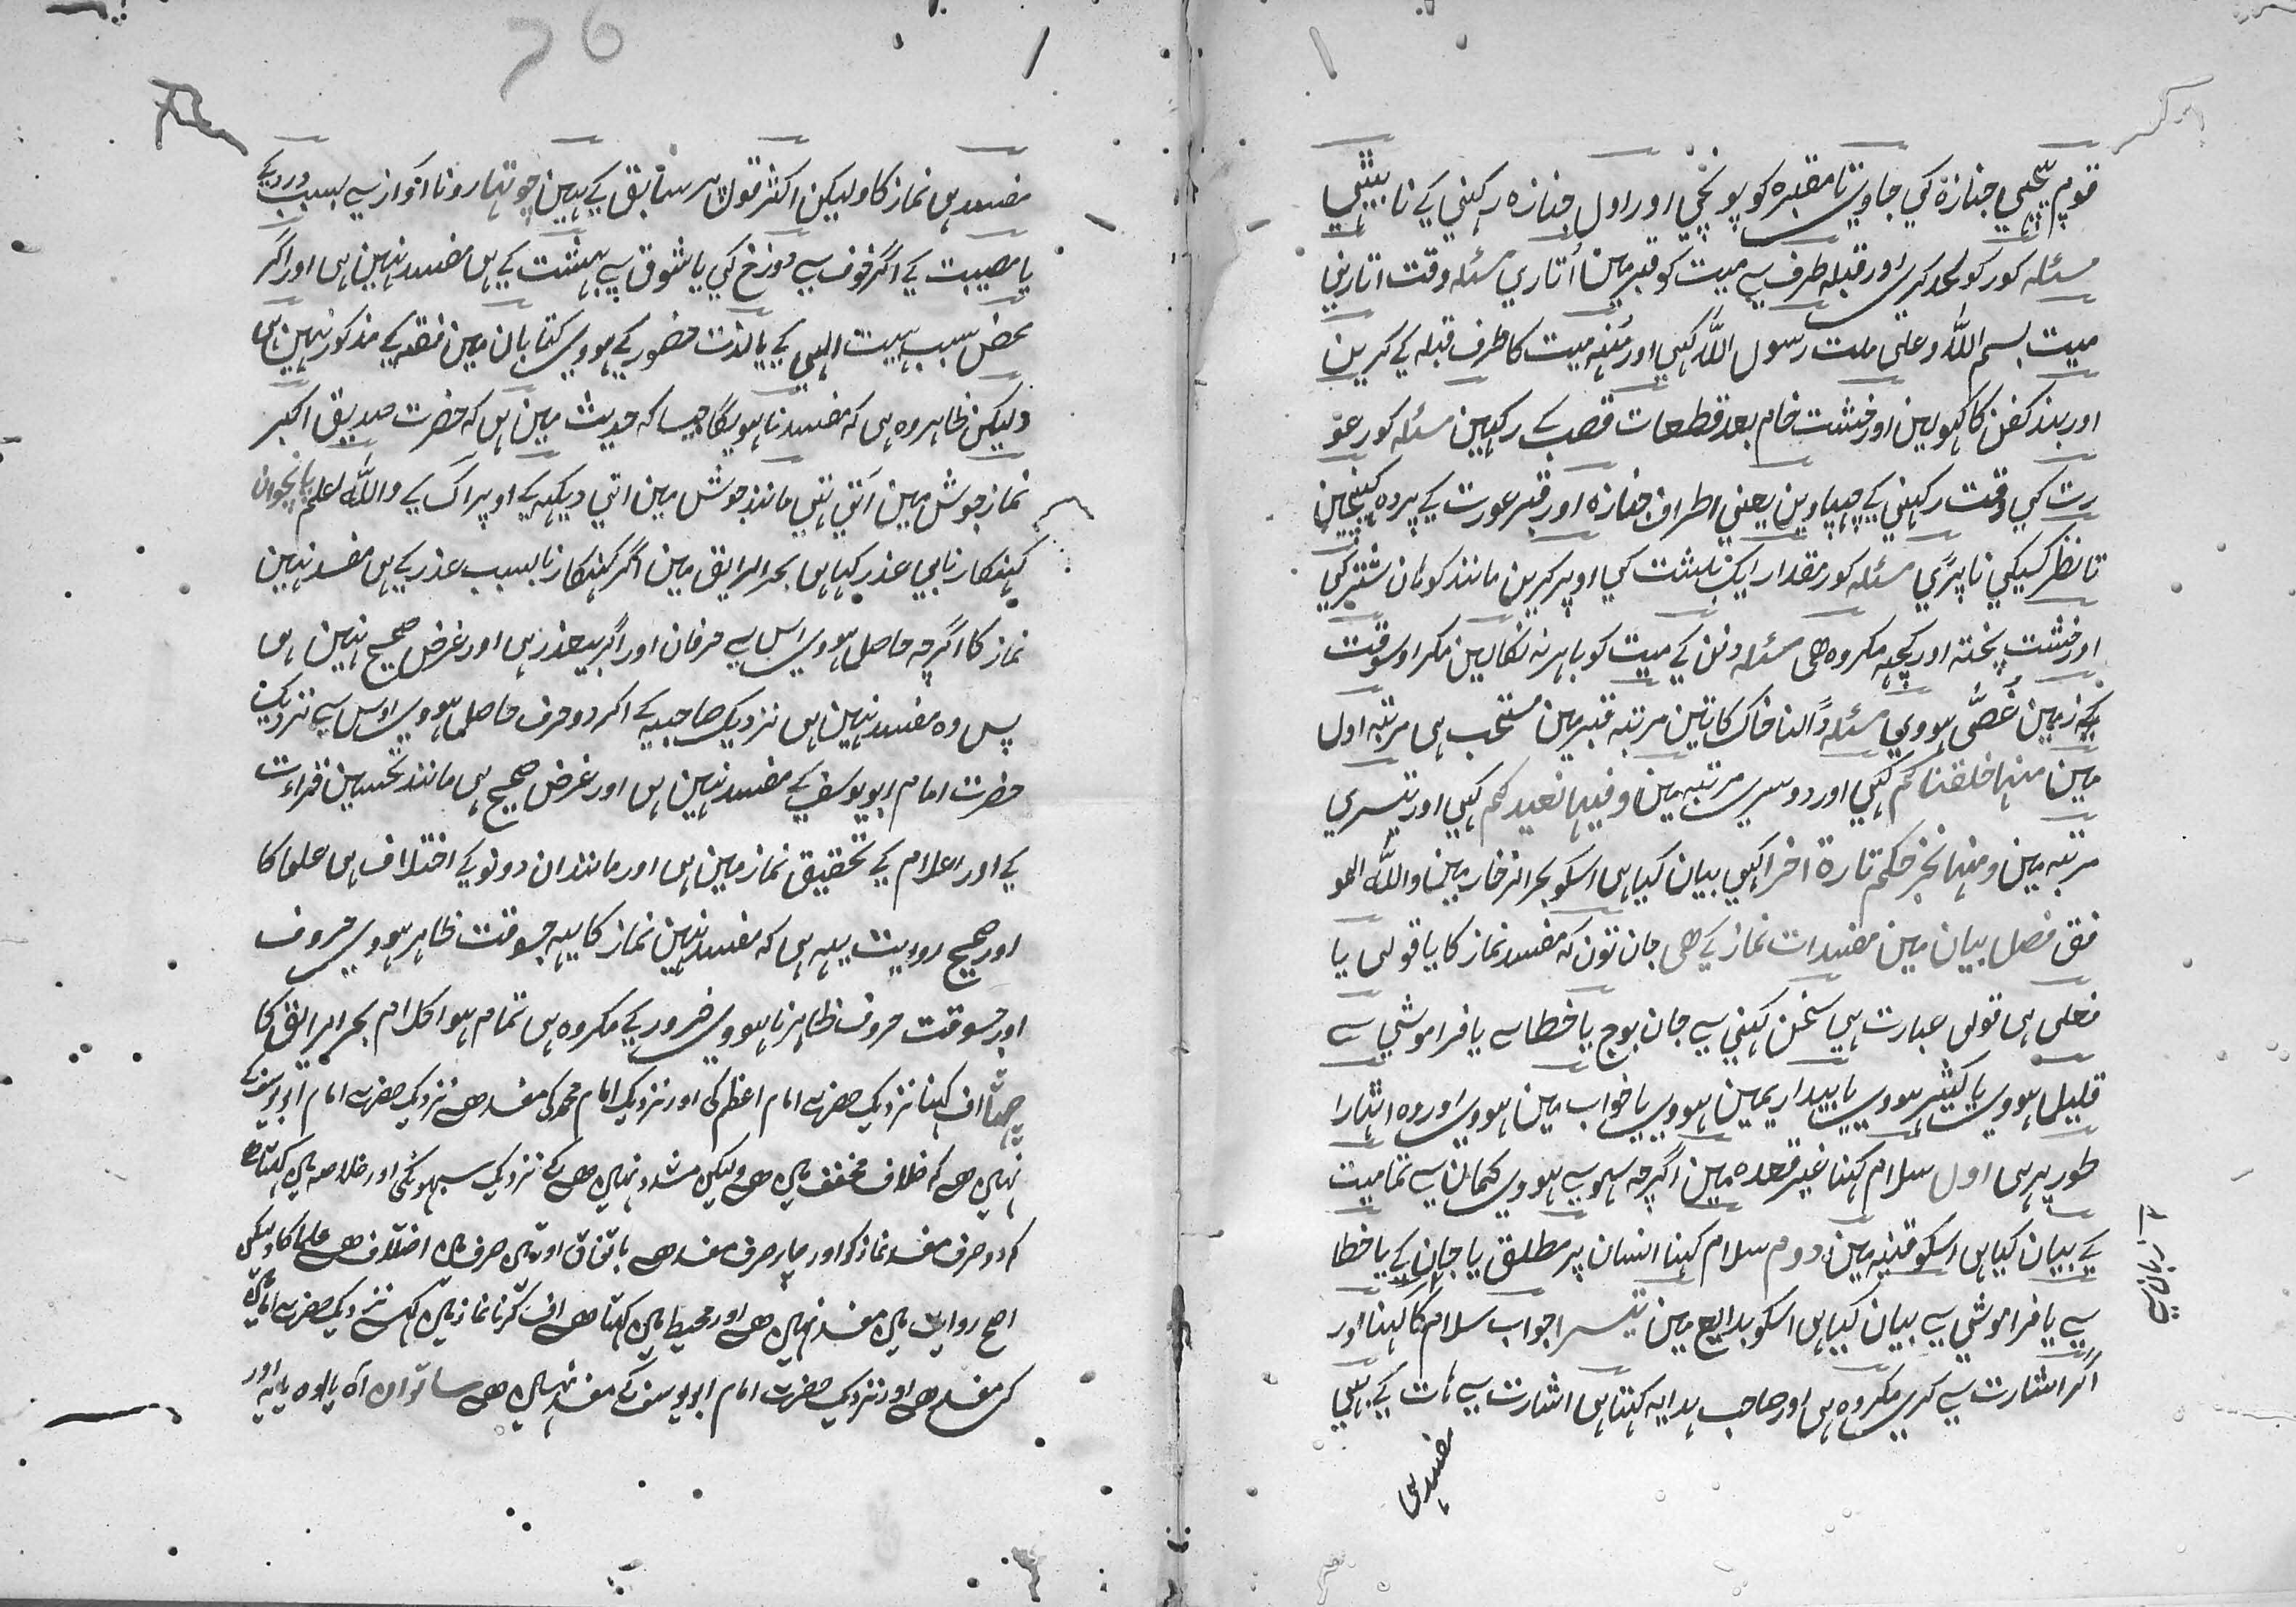 قوم پیچھی جنازة کي جاوی تا مقبره کو پونچی اور اول جنازه رکہنی کے نا بیٹہی
مسئلہ کور کو لحد کری اور قبلہ طرف سے میت کو قبر مین اُتاری مسئلہ وقت اتارنی
میت بسم اللّٰہ وعلی ملت رسول اللّٰہ کہی اور مُنہہ میت کا طرف قبلہ کے کرین
اور بند کفن کا کہولین اور خشت خام بعد قطعات قصب کے رکہین مسئلہ کور عو
رت کي وقت رکہنی کے چہپاوین یعنی اطراف جنازه اور قبر عورت کے پرده کہنچین
تا نظر کسیکی نا پڑي مسئلہ کور مقدار ایک بلشت کي اوپر کرین مانند کوہان شتر کي
اور خشت پختہ اور کچہہ مکروه هی مسئلہ دفن کے میت کو باہر نہ نکالین مکر اوسوقت
کہ زمین غُصُبی ہووي مسئلہ ڈالنا خاک کا تین مرتبہ قبر مین مستحب ہی مرتبہ اول
مین منہا خلقناکم کہی اور دوسری مرتبہ مین وفیہا نعیدکم کہی اور تیسري
مرتبہ مین ومنہا نخرجکم تارة اخرا کہی بیان کیا ہی اسکو بحر الزخار مین واللّٰہ المو
فق فصل بیان مین مفسدات نماز کے هی جان تون کہ مفسد نماز کا یا قولی یا
فعلی ہی قولی عبارت ہی سخن کہنی سے جان بوج یا خطا سے یا فراموشی سے
قلیل ہووی یا کثیر ہووی یا بیداریمین ہووی یا خواب مین ہووی اور وه اٹہارا
طور پر ہی اول سلام کہنا غیر قعده مین اگرچہ سہو سے ہووی کمان سے تمامیت
کے بیان کیا ہی اسکو قنیہ مین دوم سلام کہنا انسان پر مطلق یا جان کے یا خطا
سے یا فراموشی سے بیان کیا ہی اسکو بدایع مین تیسرا جواب سلام کا کہنا اور
اگر اشارت سے کری مکروه ہی اور صاحب ہدایہ کہتا ہی اشارت سے ہات کے بہی
مفسد ہی
مفسد ہی نماز کا ولیکن اکثر قول پر سابق کے ہین چوتہا رونا آواز سے بسبب درد کے
یا مصیبت کے اگر خوف سے دوزخ کي یا شوق سے بہشت کے ہی مفسد نہین ہی اور اگر
محض سبب ہیبت الہی کے یا لذت حضور کے ہووی کتابان مین فقہ کے مذکور نہین ہی
ولیکن ظاہر وه ہی کہ مفسد نا ہویگا جیسا کہ حدیث مین ہی کہ حضرت صدیق اکبر
نماز جوش مین آتی تہی مانند جوش مین اتی دیکہہ کے اوپر اگ کے واللّٰہ اعلم پانچوان
کہنکارنا بی عذر کیا ہی بحر الرایق مین اگر کہنکارنا بسبب عذر کے ہی مفسد نہین
نماز کا اگرچہ حاصل ہووی اس سے حرفان اور اگر بیعذر ہی اور غرض صحیح نہین ہی
پس وه مفسد نہین ہی نزدیک صاحبیہ کے اکر دو حرف حاصل ہووی اوس سے نزدیک
حضرت امام ابو یوسف کے مفسد نہین ہی اور غرض صحیح ہی مانند تحسین قراءت
کے اور اعلام کے تحقیق نماز مین ہی اور مانند ان دونو کے اختلاف ہی علما کا
اور صحیح روایت یہہ ہی کہ مفسد نہین نماز کا یہہ جسوقت ظاہر ہووی حروف
اور جسوقت حروف ظاہر نا ہووی ضرور کے مکروه ہی تمام ہوا کلام بحر الرایق کا
چہٹا اف کہنا نزدیک حضرت امام اعظم کی اور نزدیک امام محمد کی مفسد هی نزدیک حضرت امام ابو یوسف کے
نہین هی کہ خلاف مخفف مین هی ولیکن مشدد نہین هی کے نزدیک سبہونکی اور خلاصہ مین کہتا هی
کہ دو حرف مفسد نماز کو اور چار حرف مفسد هی باتفاق اور تین حرف مین اختلاف هی علما کا ولیکن
اصح روایت مین مفسد نہین هی اور محیط مین کہتا هی اف کرنا نماز مین کہہ نزدیک حضرت امام
کی مفسد هی اور نزدیک حضرت امام ابو یوسف کے مفسد نہین هی ساتوان آہ یا اوہ یا یہہ اور